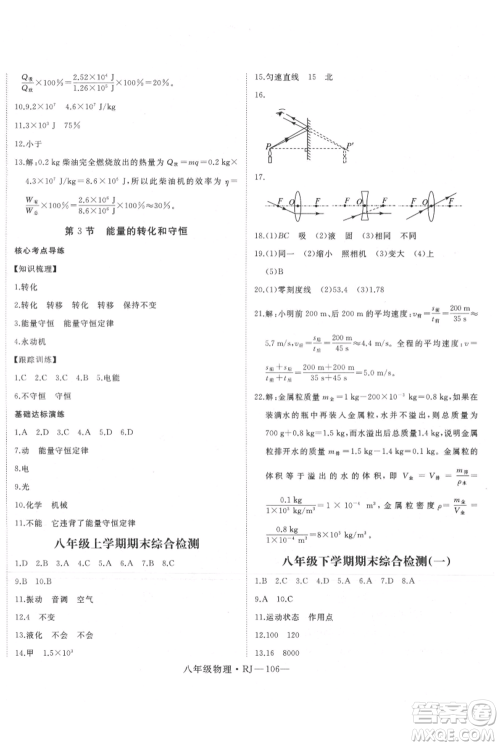 Q吸/Q放×100%=2.52×10⁴ J/1.26×10⁵ J×100%=20%
10.9.2×10⁷　4.6×10⁷ J/kg
11.3×10³　75%
12.小于
13.解:0.2 kg 柴油完全燃烧放出的热量为 Q放=mq=0.2 kg×
4.3×10⁷ J/kg=8.6×10⁶ J,所以此柴油机的效率为 η=
×100%=×100%=
第 3 节　能量的转化和守恒
核心考点导练
【知识梳理】
1.转化
2.转化　转移　转移　转化　保持不变
3.能量守恒　能量守恒定律
4.永动机
【跟踪训练】
1.C　2.C　3.C　4.B　5.电能
6.不守恒　守恒
基础达标演练
1.A　2.D　3.A　4.C　5.A　6.A
7.动　能量守恒
8.电
9.光
10.化学　机械
11.不能　它违背了能量守恒定律
八年级上学期期末综合检测
1.D　2.D　3.A　4.C　5.D　6.C　7.D　8.B
9.B　10.A
11.振动　音调　空气
12.变小　不变
13.液化　不会　不会
14.甲　1.5×10³
15.匀速直线　15　北
16.
P　P′
17.
F　O　F　F　O　F　F　O　F
18.(1)BC　吸　(2)液　固　(3)液　凝固
19.(1)同一　(2)缩小　照相机　(3)变大　(4)上
(5)B
20.(1)零刻度线　(2)53.4　(3)1.78
21.解:小明前 200 m 的平均速度:=200 m/35 s≈
5.7 m/s,后 200 m 的平均速度:=200 m/45 s≈
4.4 m/s,全程的平均速度:=
200 m+200 m/35 s+45 s=5.0 m/s。
22.解:金属粒的质量是 1 kg−200×10⁻³ kg=0.8 kg;在
装满水的瓶中再装入金属粒,则总质量应是 0.8 kg+
700 g=1.5 kg,而水溢出后总质量为 1.4 kg,金属
粒排开水的质量 m排=1.5 kg−1.4 kg=0.1 kg,金属粒的
体积等于溢出的水的体积:V金=V排=m排/ρ水=
0.1 kg/1.0×10³ kg/m³=1×10⁻⁴ m³,金属粒密度 ρ=m金/V金=
0.8 kg/1×10⁻⁴ m³=8×10³ kg/m³。
八年级下学期期末综合检测(一)
1.B　2.C　3.D　4.C　5.A　6.C　7.D　8.D
9.A　10.C
11.运动状态　作用点
12.100　120
13.16　8000
八年级物理·RJ—106—